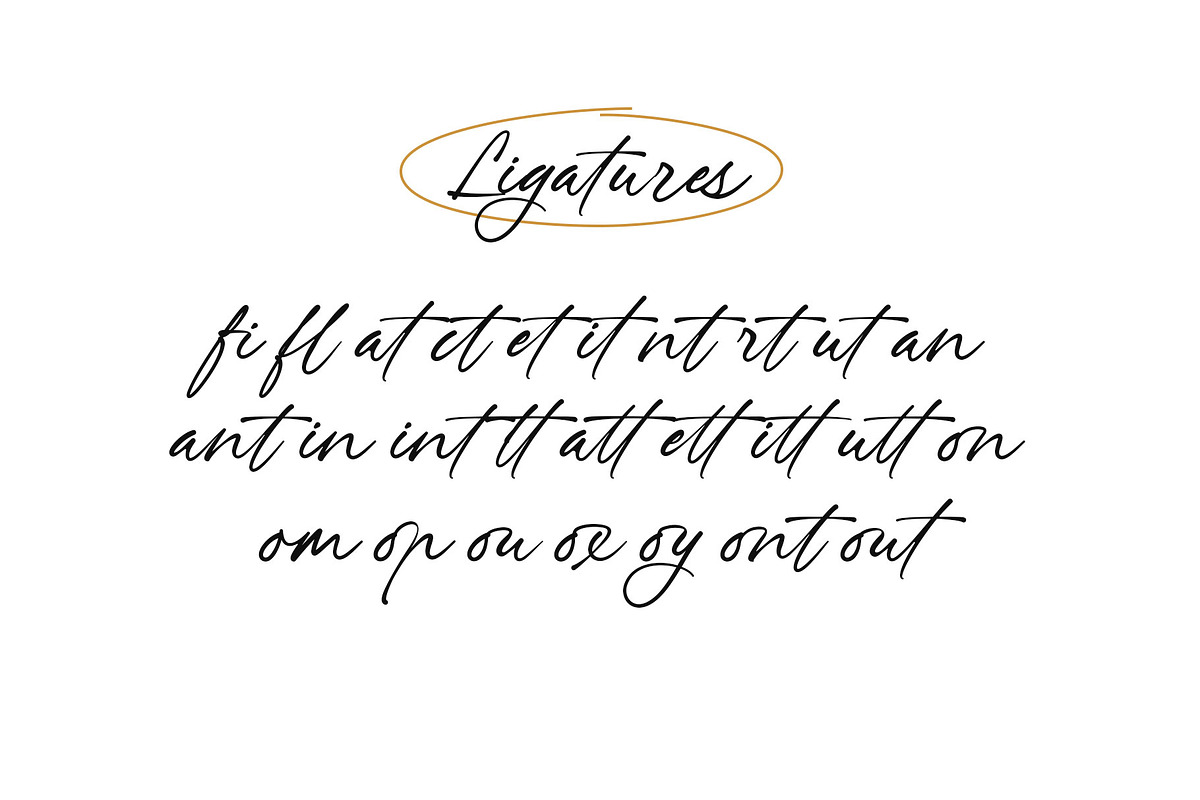 Ligatures
fi fl at ct et it nt rt ut an
ant in int tt att ett itt utt on
om op ou ox oy ont out